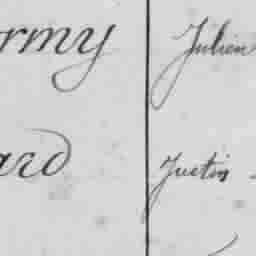 ormy Julien
ard Justin